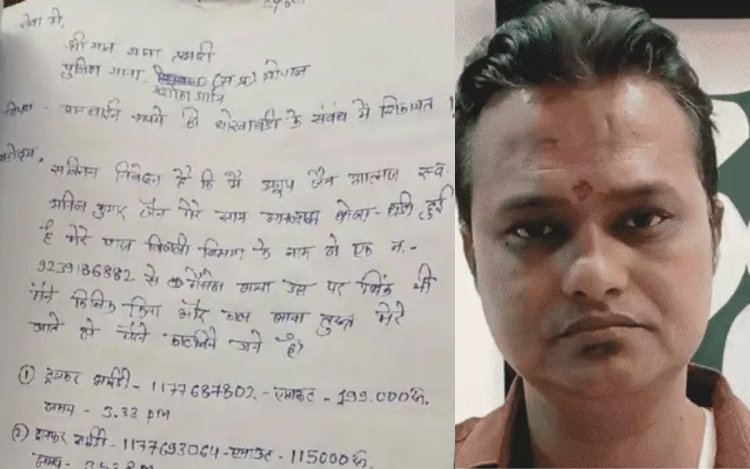 सेवा में,
श्री मान थाना प्रभारी
पुलिस थाना (म.प्र) भोपाल
अशोका गार्डन
विषय - आनलाईन रूपये की धोखाधडी के संबंध में शिकायत।
महोदय,
सविनय निवेदन है कि मै अनुप जैन आत्मज स्व.
अनिल कुमार जैन मेरे साथ आनलाइन धोखा-धडी हुई
है मेरे पास बिजली विभाग के नाम से एक न.-
9239186882 से मैसेज आया उस पर लिंक थी
मैने क्लिक किया और काल आया तुरन्त मेरे
खाते से पैसे
(1) ट्रांसफर आईडी - 1177687802 - एमाउंट - 199.000रू.
समय - 3.33 pm
(2) ट्रांसफर आईडी - 1177693064 - एमाउंट - 115000रू.
समय -